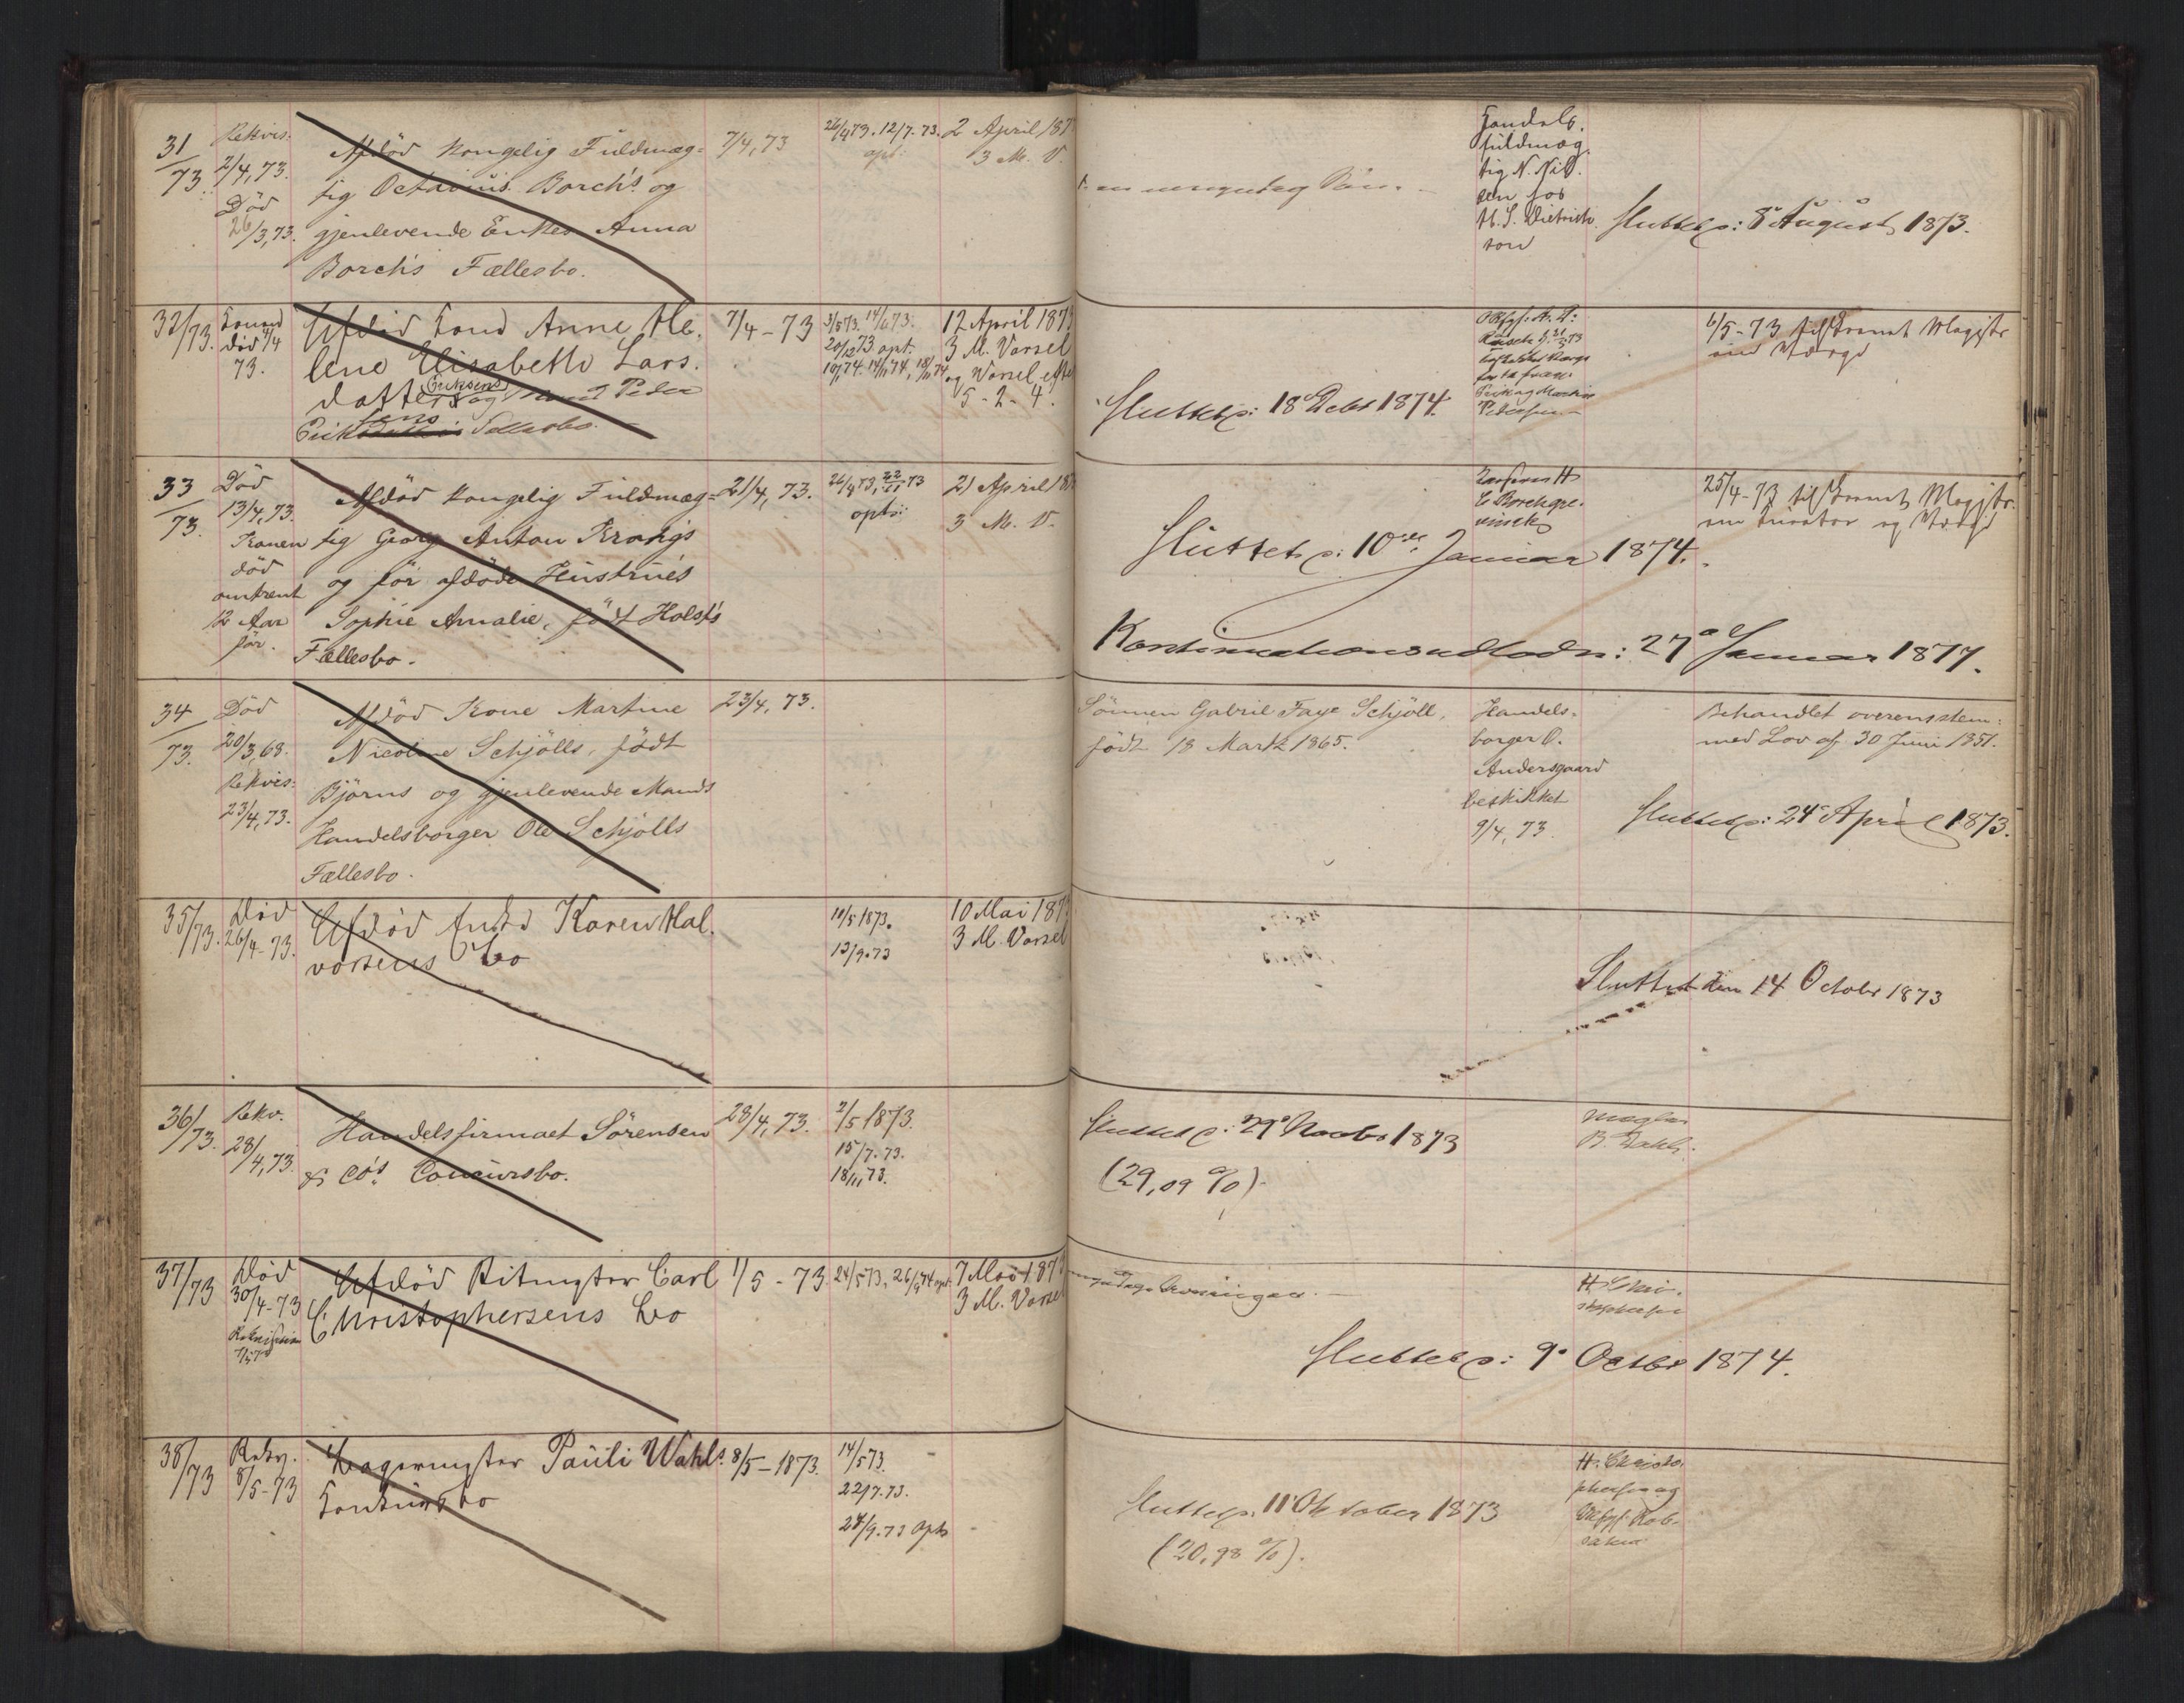 31/73.
Rekvis:
2/4, 73.
Död
26/3, 73.
Afdöd kongelig Fuldmæg-
tig Octavius Borch's og
gjenlevende Enkes Anna
Borch's Fællesbo.
7/4, 73
26/4 73. 12/7. 73.
opt:
2 April 187
3 M. V.
en umyndig Sön. –
Handels.
fuldmæg.
tig N. Niel.
sen for
H. S. Dietrich
son
Sluttet p: 8de August 1873.
32/73.
död 4/4
73.
Afdöd Anne He.
lene Elisabeth Lars.
datter Eriksens og Mand Peder
Fællesbo.
7/4 – 73
3/5 73. 14/6 73.
20/12 73 opt:
12 April 1873
3 M. Varsel
og Varsel efter
5 – 2 – 4.
Sluttet p: 18de Debr 1874.
Erik og Martin
Pedersen
6/5 – 73 tilskrevet Magistr
om Værge
33/73.
Död
13/4, 73.
Konen
död
omtrent
12 Aar
för.
Afdöd kongelig Fuldmæg-
tig Georg Anton Krohg's
og för afdöde Hustrues
Sophie Amalie, födt Holst's
Fællesbo.
21/4, 73.
26/4 73, 22/11 73
opt:
21 April 187
3 M. V.
Sluttet p: 10de Januar 1874.
25/4 – 73 tilskrevet Magistr.
om Curator og Værge
Kontinuationsudlodn: 27de Januar 1877.
34/73.
Död
20/3, 68.
Rekvis:
23/4, 73.
Afdöd Kone Martine
Nicoline Schjölls, födt
Björns og gjenlevende Mands
Handelsborger Ole Schjölls
Fællesbo.
23/4, 73.
Sönnen Gabriel Faye Schjöll,
födt 18 Marts 1865.
Handels-
borger O.
Andersgaard
beskikket
9/4, 73.
Behandlet overensstem:
med Lov af 30 Juni 1851.
Sluttet p: 24de April 1873.
35/73.
Död
26/4 – 73.
Afdöd Enke Karen Hal.
vorsens Bo
10/5 1873.
13/9. 73
10 Mai 1873
3 M. Varsel
Sluttet den 14 October 1873
36/73.
Rekv.
28/4, 73.
Handelsfirmaet Sörensen
& Co's Concursbo.
28/4, 73.
2/5 1873.
15/7. 73.
18/11, 73.
Sluttet p: 29de Novbr 1873
(29,09 %)
Mægler
B. Dahl.
37/73
Död
30/4 – 73
Rekvisition
1/5 73
Afdöd Ritmster Carl
Christophersens Bo
1/5 – 73
24/5 73, 26/9 74 opt.
7 Mai 1873
3 M. Varsel
myndige Arvinger. –
H. Chri-
stophersen
Sluttet p: 9de Octbr 1874.
38/73
Rekv.
8/5 – 73
Bagermster Pauli Wahls
Konkursbo
8/5 – 1873.
14/5 73.
22/7. 73.
24/9. 73 opt
Sluttet p. 11te Oktober 1873
(20,98 %).
H. Christo.
phersen og